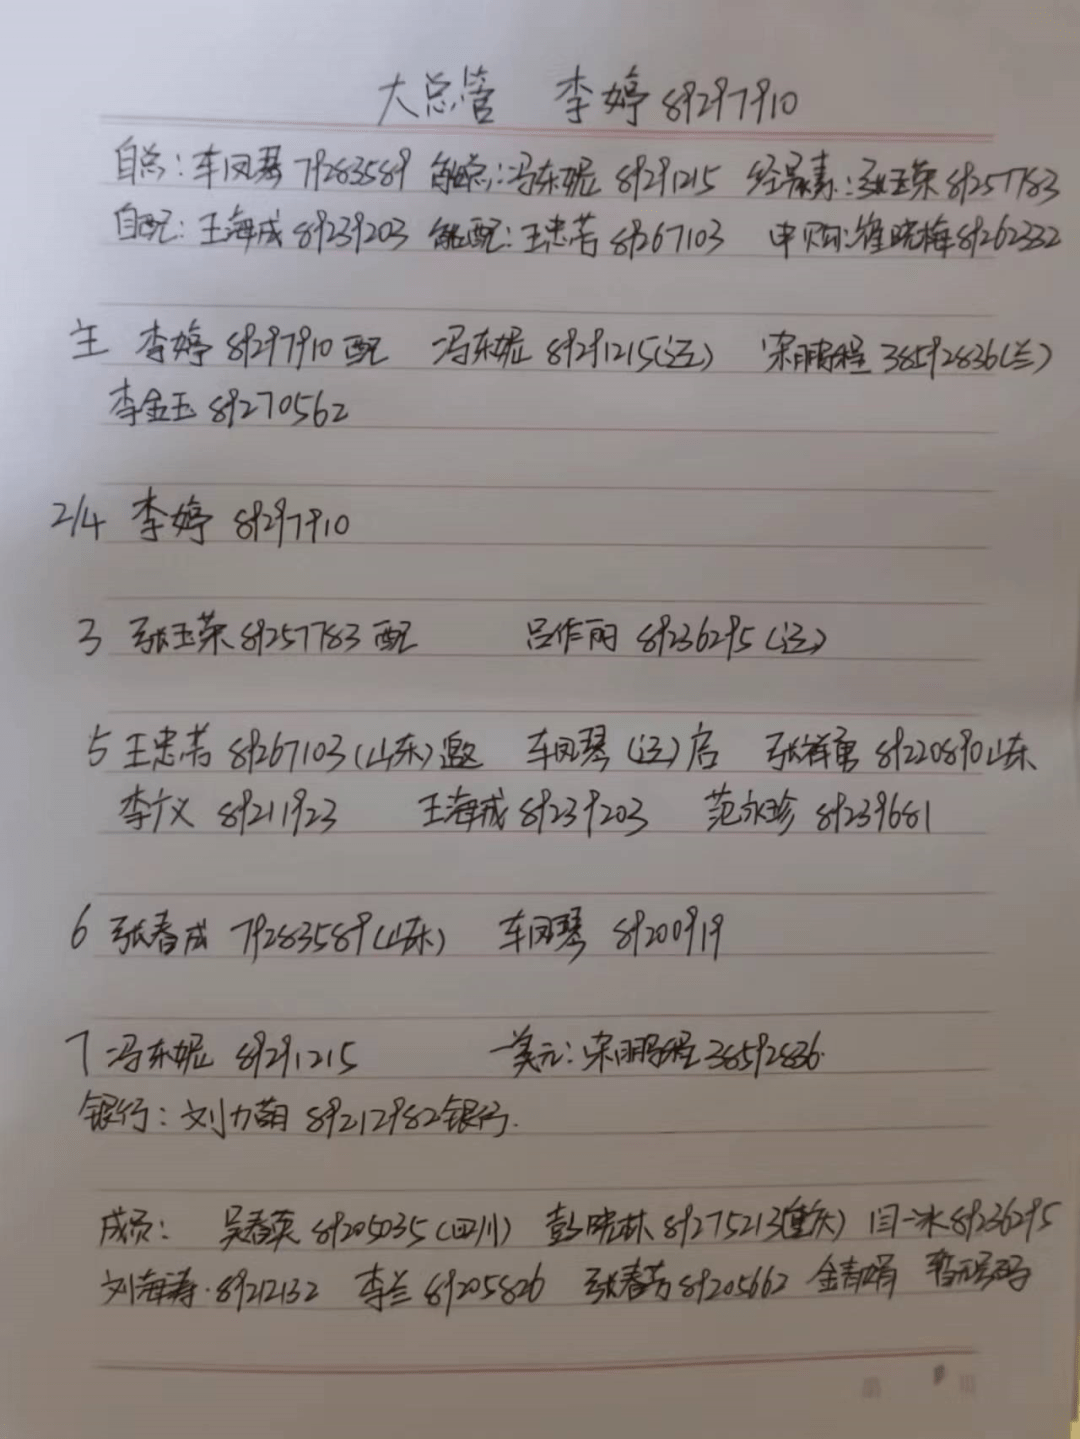 大总管 李婷 89297910
自总:车凤琴 79283589 能总:冯东妮 89291215 经晨素:张玉荣 89257783
自配:王海成 89239203 能配:王忠若 89267103 申购:崔晓梅 89262332
主 李婷 89297910 配 冯东妮 89291215(辽) 宋鹏程 38592836(兰)
李金玉 89270562
2/4 李婷 89297910
3 张玉荣 89257783 配 吕作丽 89236295(辽)
5 王忠若 89267103(山东)邀 车凤琴(辽)店 张祥勇 89220890山东
李广义 89211923 王海成 89239203 范永珍 89239681
6 张春成 79283589(山东) 车凤琴 89200919
7 冯东妮 89291215 美元:宋鹏程 38592836
银行:刘力萌 89212982银行.
成员: 吴春英 89205035(四川) 彭晓林 89275213(重庆) 闫冰 89236295
刘海涛 89212132 李兰 89205826 张春芳 89205662 金青娟 暂无号码